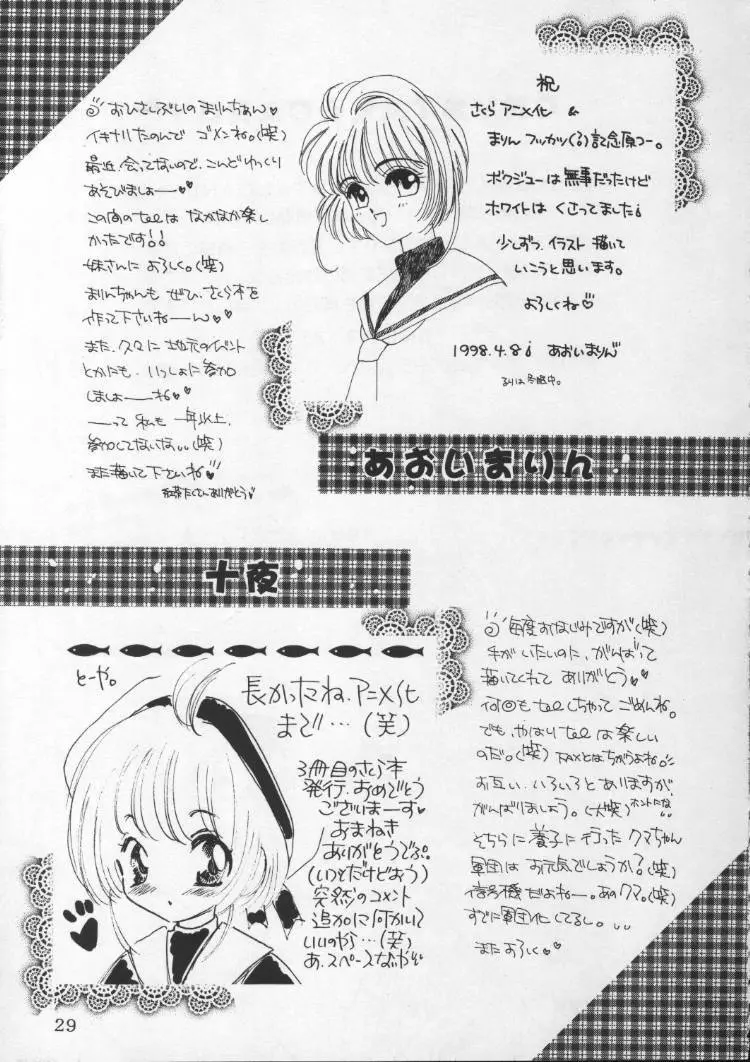 おひさしぶりの まりんちゃん♥
イキナリたのんで ゴメンね。(笑)
最近、会ってないので、こんどゆっくり
あそびましょー♥♥
この間のtelは なかなか楽し
かったです!!
妹さんに よろしく。(笑)
まりんちゃんも ぜひ、さくら本を
作って下さいねーん♥♥
また、久々に 地元のイベント
とかにも、いっしょに参加
しましょーね♥♥
――って 私も 一年以上、
参加してないな、、(笑)
また描いて下さいね♥
お茶たくさんありがとう♥
祝
さくら アニメ化 &
まりん フッカツ(る)記念原コー。
ボクジューは 無事だったけど
ホワイトは くさってました。
少しずつ、イラスト 描いて
いこうと思います。
よろしくね♡
1998.4.8 あおいまりん
あおいまりん
十夜
とーや。
長かったね、アニメ化
まで…(笑)
3冊目のさくら本
発行、おめでとう
ございまーす♥
おまねき
ありがとうでぷ。
(いつもだけどおう)
突然のコメント
追加に何かいて
いいのやら…(笑)
あ、スペースなーいや
毎度おなじみですが(笑)
手がいたいのに、がんばって
描いてくれて ありがとう♥
何回も telしちゃって ごめんね。
でも、やはり telは 楽しい
のだ。(笑) FAXとはちがうよね♪
お互い、いろいろとありますが
がんばりましょう。(大笑) ホントにな
そちらに 養子に 行った クマちゃん
軍団は お元気でしょうか?(笑)
信号機だよねー。あのクマ。(笑)
すでに軍団化してるし。、、
また よろしく♥♥
29